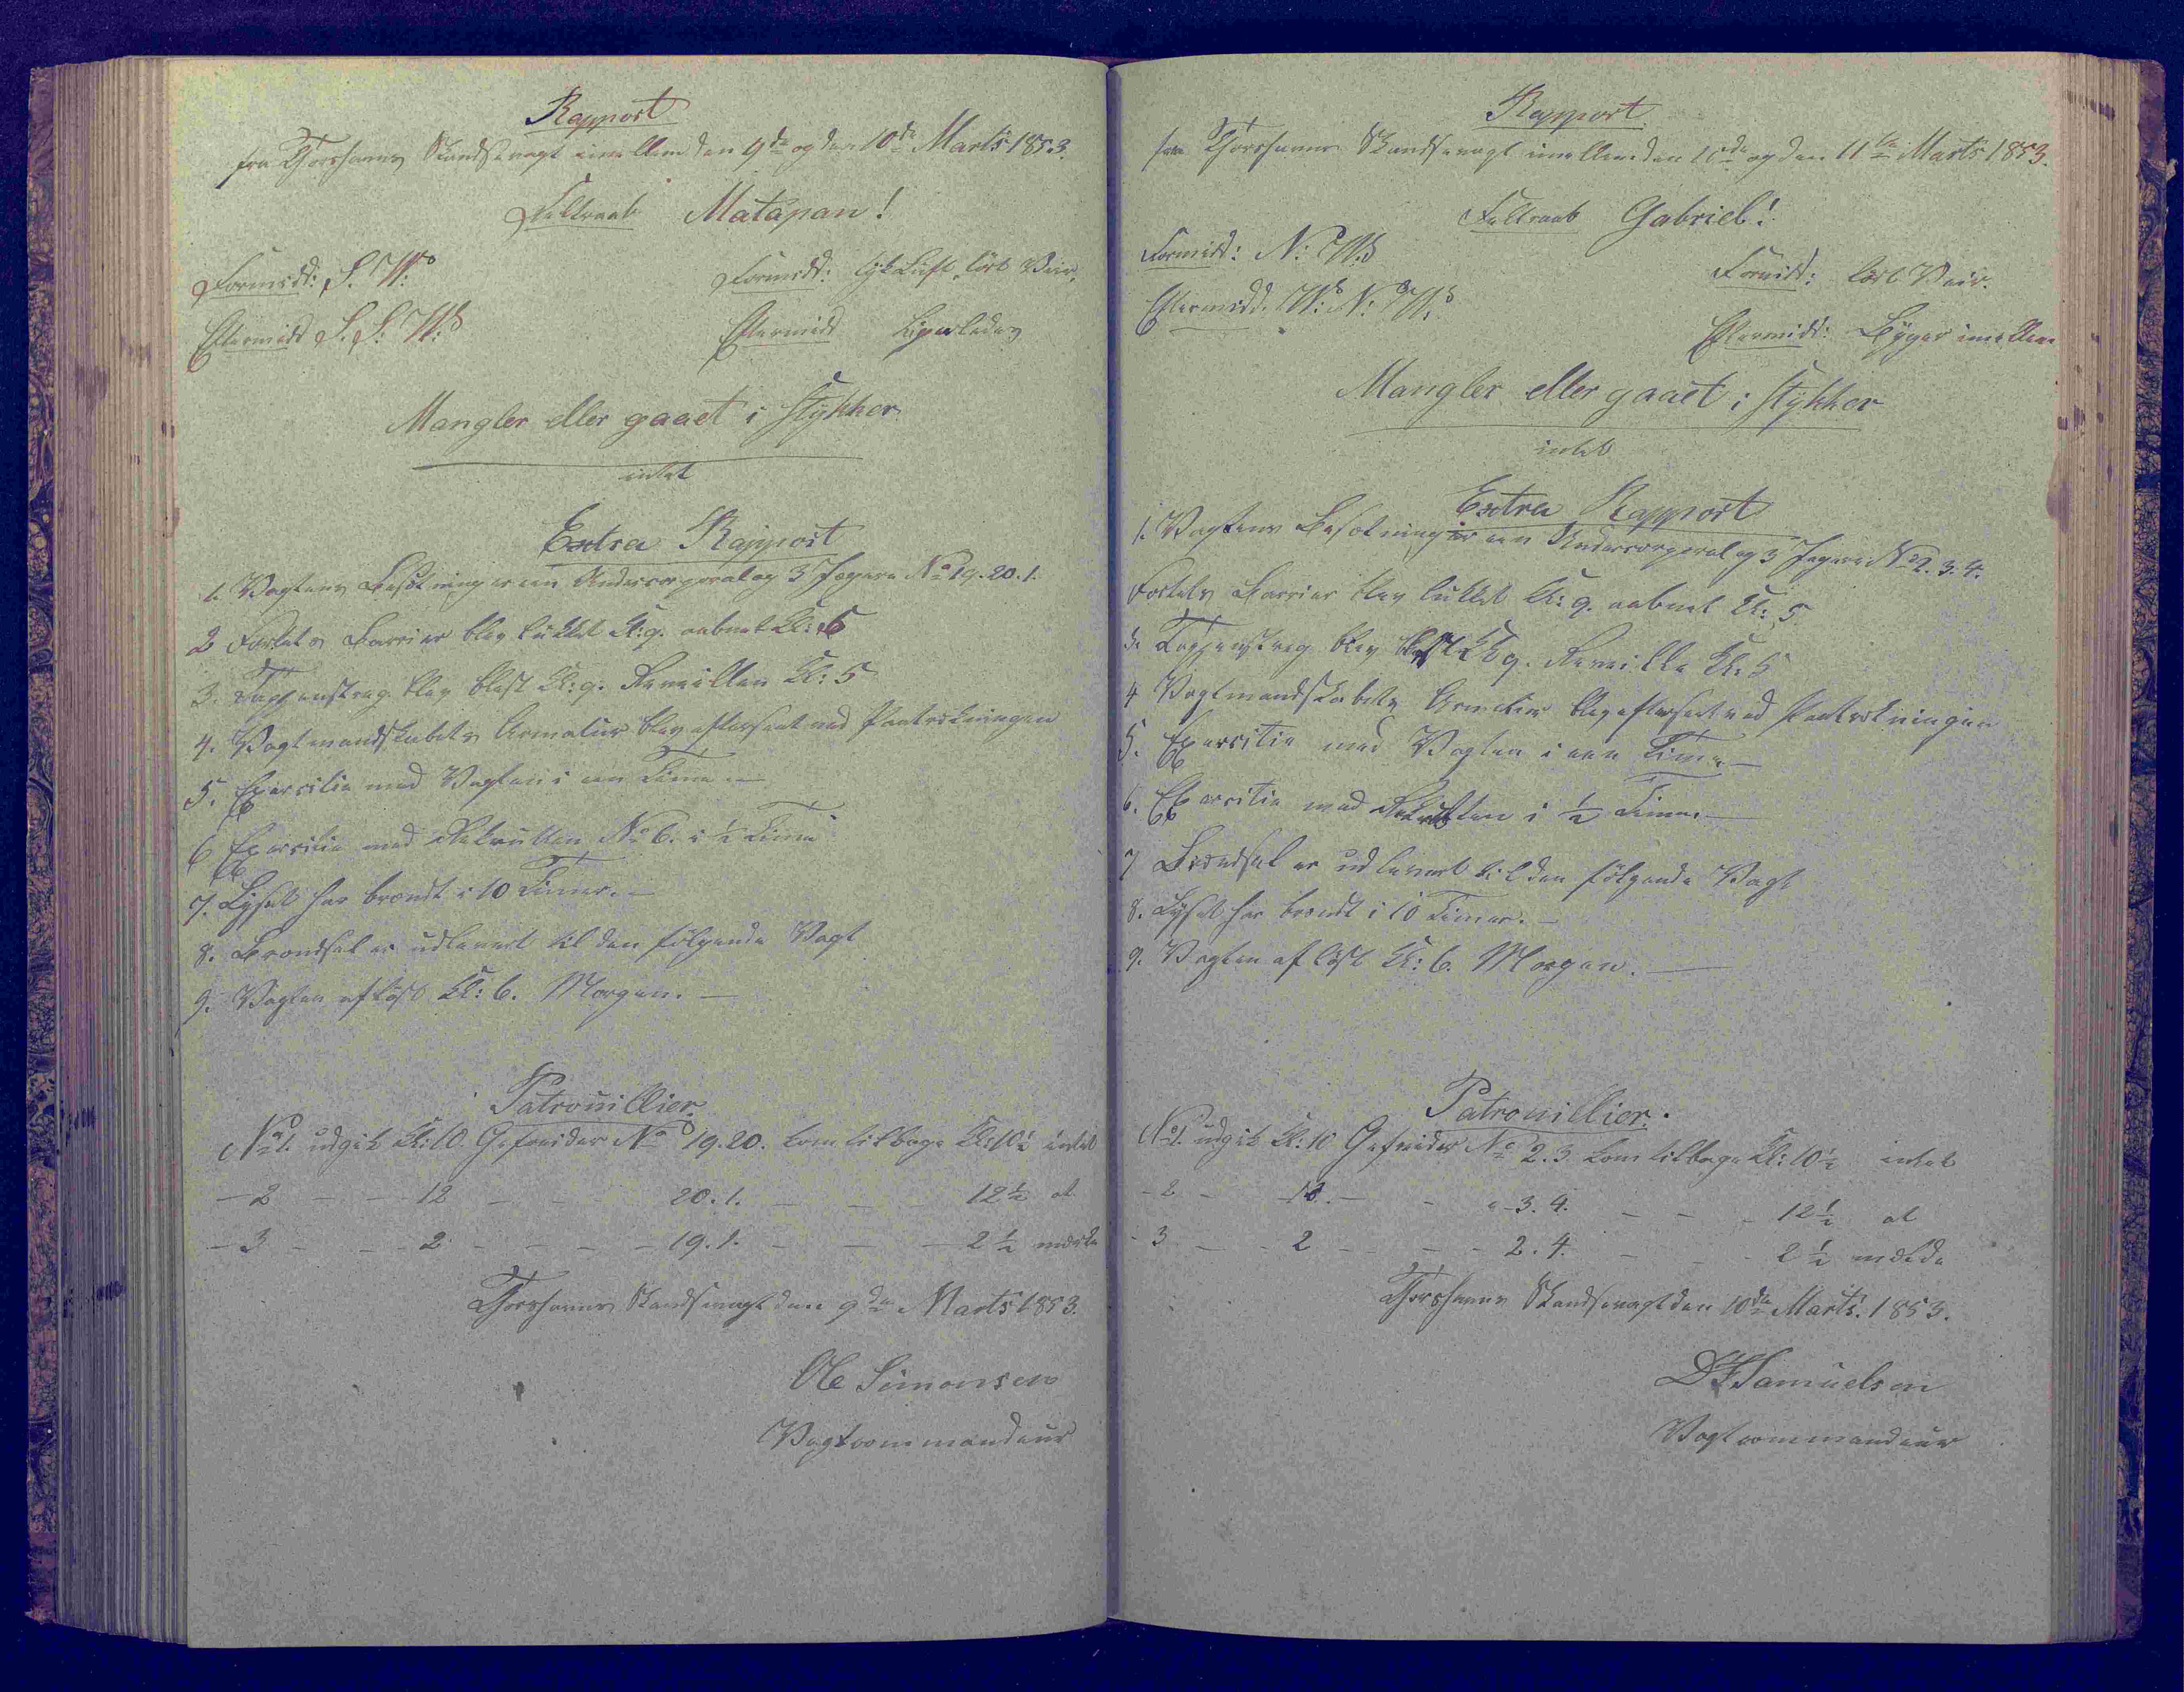 Rapport
fra Thorshavns Skandsevagt imellem den 9de og den 10de Marts 1853.
Feltraab Matapan!
Formidd: S. W: Formidd: tyk Luft, tört Veir.
Eftermidd S. S. W: Eftermidd ligeledes
Mangler eller gaaet i stykker
intet
Extra Rapport
1. Vagtens Besætning er een Undercorporal og 3 Jægere No 19. 20. 1.
2 Fortets Barrier blev lukket Kl: 9. aabnet Kl: 5
3. Tappenstreg blev blæst Kl: 9. Reveillen Kl: 5
4. Vagtmandskabets Armatur blev efterseet ved Paatrækningen
5. Exercitie med Vagten i een Time. —
6 Exercitie med Rekrutten No 6. i ½ Time
7. Lyset har brændt i 10 Timer. —
8. Brændsel er udleveret til den følgende Vagt
9. Vagten aflöst Kl: 6. Morgen. —
Patrouillier
No 1. udgik Kl: 10. Gefreider No 19. 20. kom tilbage Kl: 10½ intet
— 2 — — 12 — — 20. 1. — — 12½ at
— 3 — — 2 — — — 19. 1. — — — 2½ melde
Thorshavns Skandsevagt den 9de Marts 1853.
Ole Simonsen
Vagtcommandeur
Rapport
fra Thorshavns Skandsevagt imellem den 10de og den 11te Marts 1853.
Feltraab Gabriel!
Formidd: N: W. Formidd: tört Veir.
Eftermidd. W: N: W. Eftermidd: Byger imellem
Mangler eller gaaet i stykker
intet
Extra Rapport
1. Vagtens Besætning er een Undercorporal og 3 Jægere No 2. 3. 4.
Fortets Barrier blev lukket Kl: 9. aabnet Kl: 5.
3. Tappenstreg blev blæst Kl 9. Reveille Kl: 5
4 Vagtmandskabets Armatur blev efterseet ved Paatrækningen
5. Exercitie med Vagten i een Time —
6. Exercitie med Rekrutten i ½ Time. —
7 Brændsel er udleveret til den følgende Vagt
8. Lyset har brændt i 10 Timer. —
9. Vagten aflöst Kl: 6. Morgen. —
Patrouillier.
No 1. udgik Kl: 10 Gefreider No 2. 3. kom tilbage Kl: 10½ intet
— 2 — 12. — — 3. 4. — — — 12½ at
— 3 — — 2 — — — 2. 4. — — — 2½ melde
Thorshavns Skandsevagt den 10de Marts. 1853.
Samuelsen
Vagtcommandeur